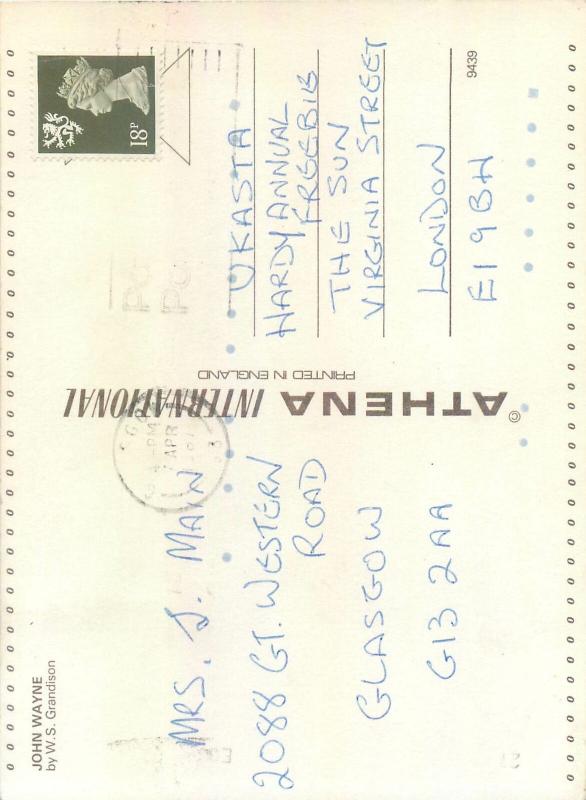 JOHN WAYNE
by W.S. Grandison
MRS. J. MAIN
2088 GT. WESTERN
ROAD
GLASGOW
G13 2AA
© ATHENA INTERNATIONAL
PRINTED IN ENGLAND
4 - PM
7 APR
18P
UKASTA
HARDY ANNUAL
FREEBIE
THE SUN
VIRGINIA STREET
LONDON
E1 9BH
9439